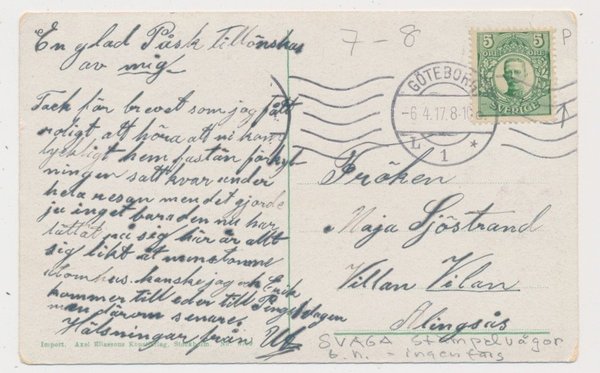 En glad Påsk tillönskas
av mig
Tack för brevet som jag fått
roligt att höra att ni kom
lyckligt hem fastän förkyl
ningen satt kvar under
hela resan men det gjorde
ju inget bars den nu har
lättat på sig här är allt
sig likt åt minstonne
utomhus. kanske jag och Erik
kommer till eder till Pingstdagen
men därom senare
Hälsningar från
Import. Axel Eliassons Konstförlag, Stockholm. No.
7-8
P
5 5
ÖRE ÖRE
SVERIGE
GÖTEBORG
-6.4.17.8-10
L 1 *
Fröken
Maja Sjöstrand
Villan Vilan
Alingsås
SVAGA Stämpelvågor
b.n. - ingen färg